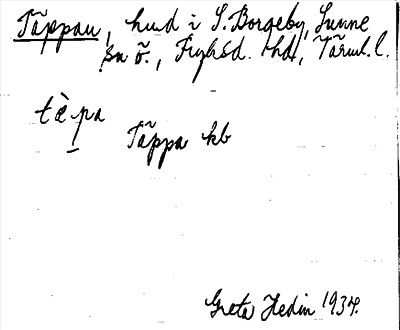 Täppan, hmd i S. Borgeby, Sunne
sn ö., Fryksd. hd, Värml. l.
tæ̀pa
Täppa kb
Greta Hedin 1934.